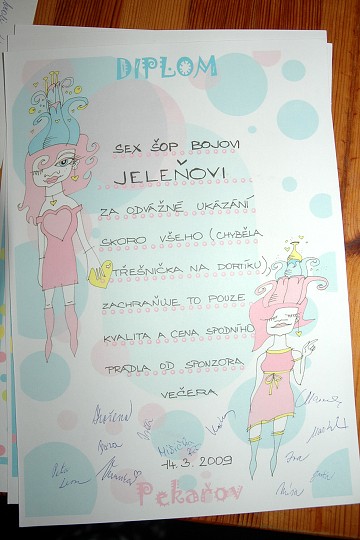 DIPLOM
SEX ŠOP BOJOVI
JELEŇOVI
ZA ODVÁŽNÉ UKÁZÁNÍ
SKORO VŠEHO (CHYBĚLA
TŘEŠNIČKA NA DORTÍKU)
ZACHRAŇUJE TO POUZE
KVALITA A CENA SPODNÍHO
PRÁDLA OD SPONZORA
VEČERA
14. 3. 2009
Pekařov